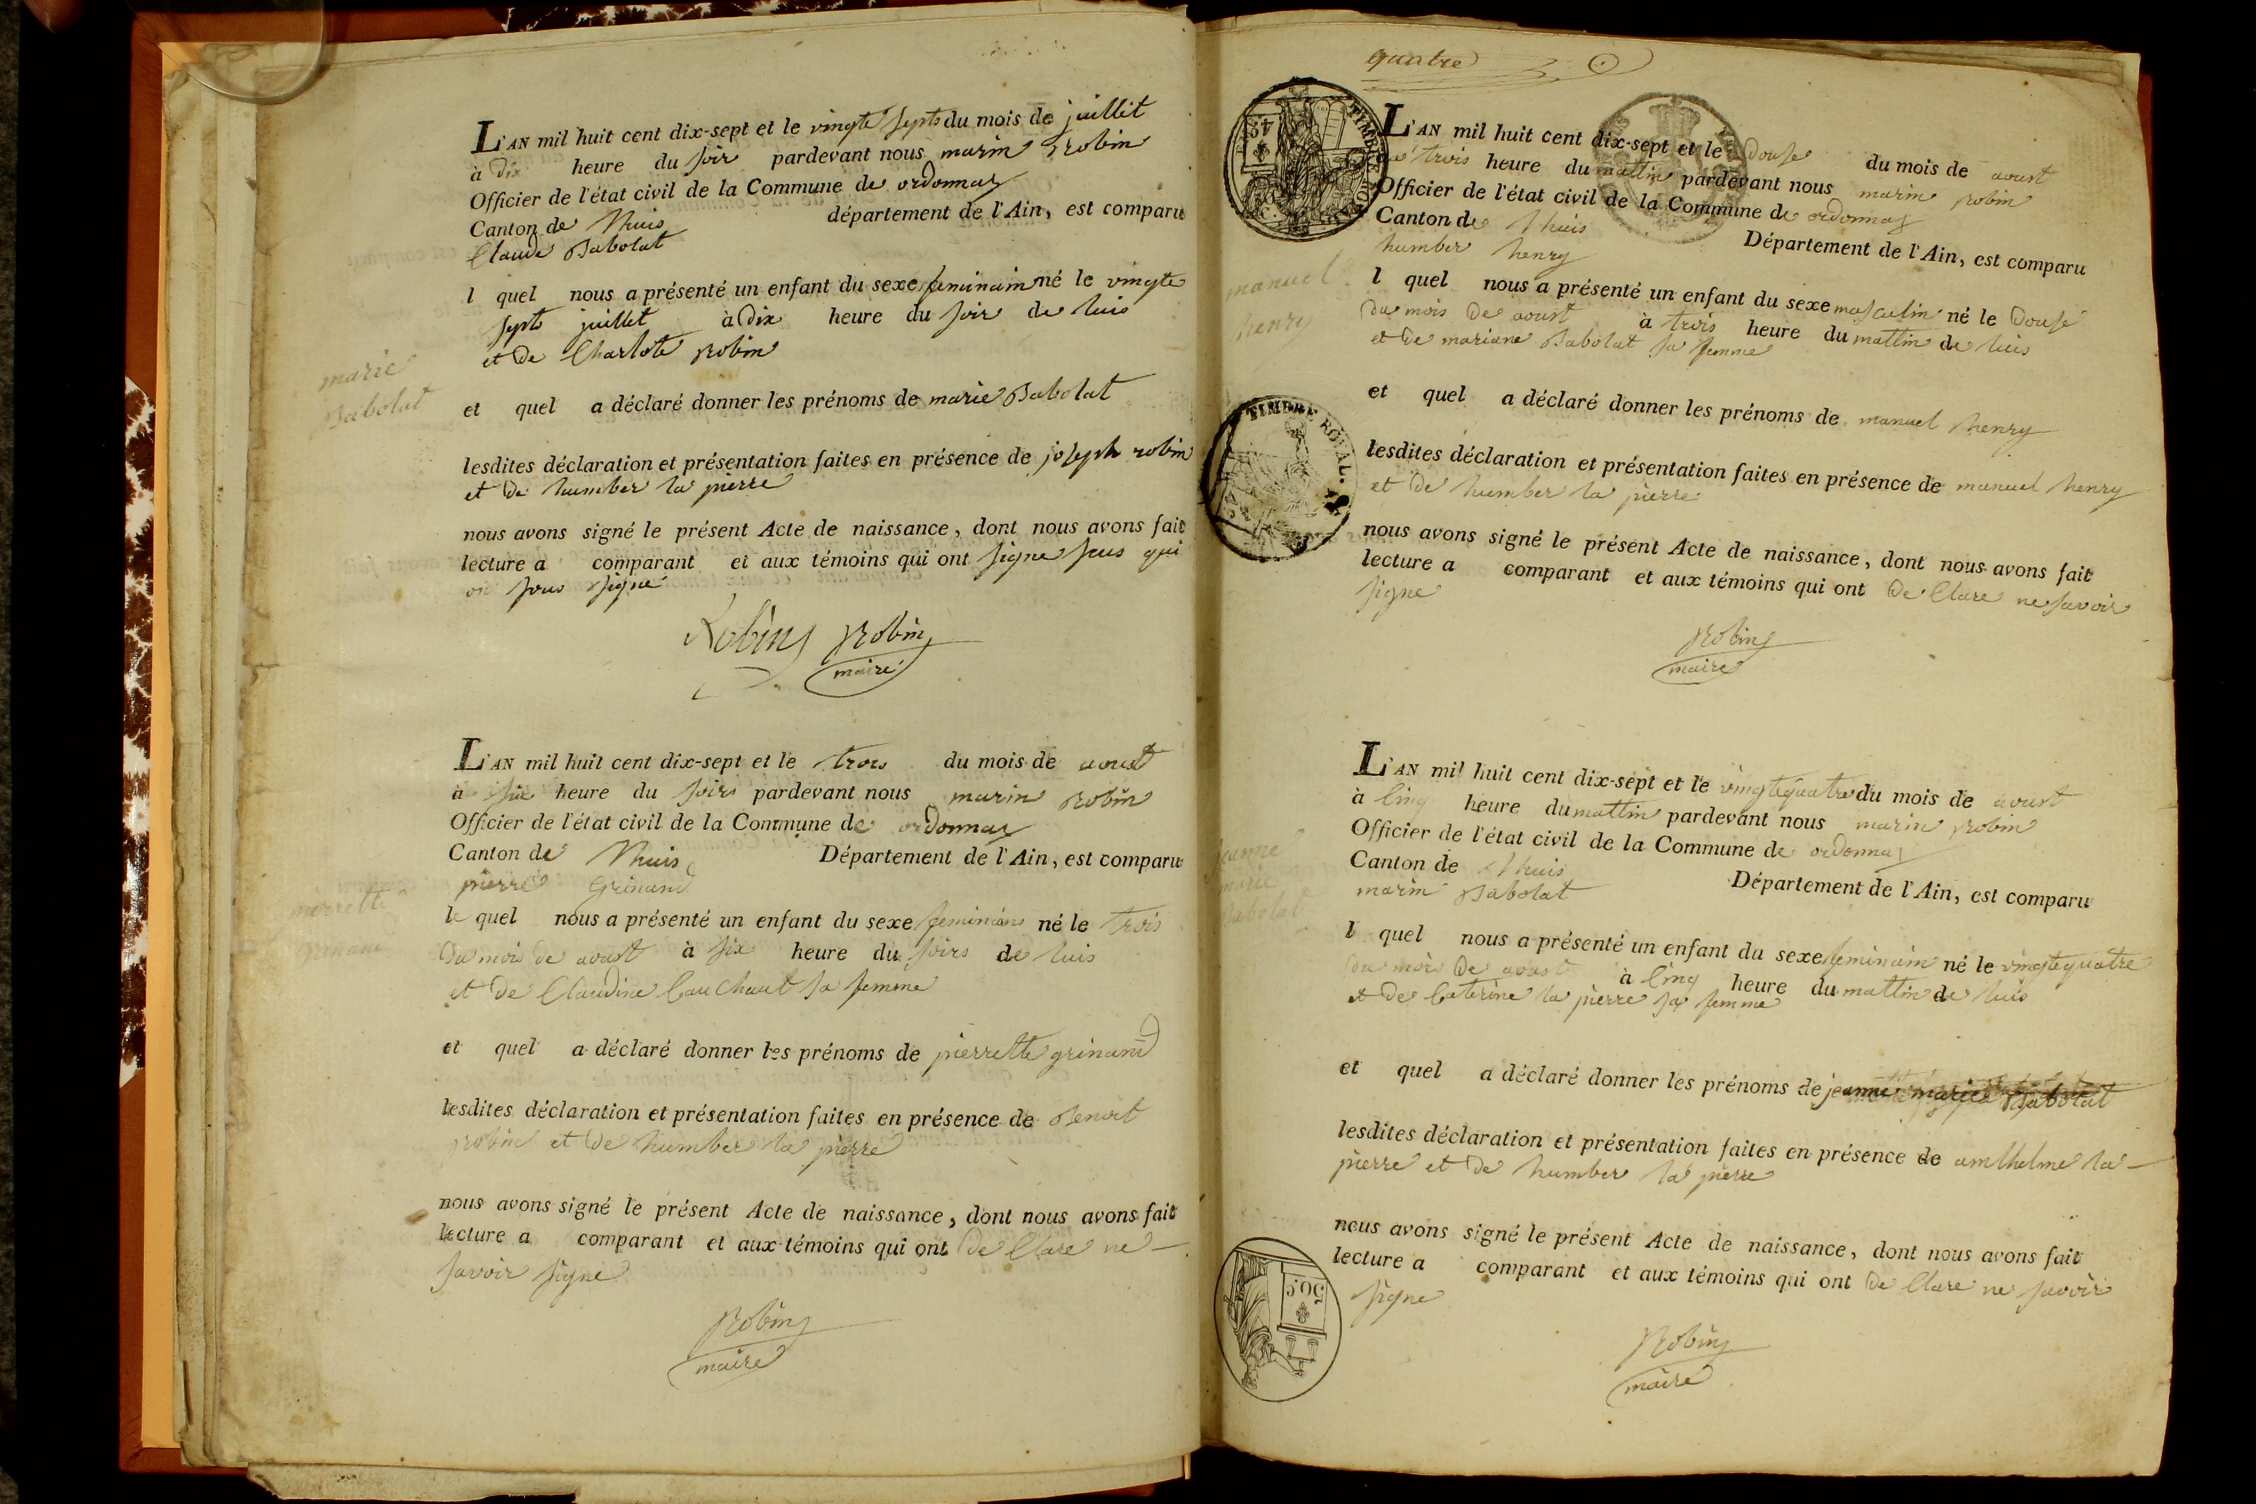 marie
Babolat
L'AN mil huit cent dix-sept et le vingte septs du mois de juillet
à dix heure du soir pardevant nous marin Robin
Officier de l'état civil de la Commune de ordonnaz
Canton de lhuis département de l'Ain, est comparu
Claude Babolat
l quel nous a présenté un enfant du sexe feminim né le vingte
septs juillet à dix heure du soir de luis
et de Charlote Robin
et quel a déclaré donner les prénoms de marie Babolat
lesdites déclaration et présentation faites en présence de joseph robin
et de humber la pierre
nous avons signé le présent Acte de naissance, dont nous avons fait
lecture a comparant et aux témoins qui ont signe seus qui
on sous signé
Robin Robin
maire
pierrette
grinand
L'AN mil huit cent dix-sept et le trois du mois de aoust
à six heure du soirs pardevant nous marin Robin
Officier de l'état civil de la Commune de ordonnaz
Canton de lhuis Département de l'Ain, est comparu
pierre Grinand
le quel nous a présenté un enfant du sexe feminims né le trois
du mois de aoust à six heure du soirs de luis
et de Claudine Cauchaut sa femme
et quel a déclaré donner les prénoms de pierrette grinand
lesdites déclaration et présentation faites en présence de Benoit
robin et de humber la pierre
nous avons signé le présent Acte de naissance, dont nous avons fait
lecture a comparant et aux témoins qui ont de Clare ne
savoir signe
Robin
maire
quatre
TIMBRE ROYAL
manuel
henry
L'AN mil huit cent dix-sept et le douse du mois de aoust
à trois heure du mattin pardevant nous marin Robin
Officier de l'état civil de la Commune de ordonnaz
Canton de lhuis Département de l'Ain, est comparu
humber henry
l quel nous a présenté un enfant du sexe masculin né le douse
du mois de aoust à trois heure du mattin de luis
et de mariane Babolat sa femme
et quel a déclaré donner les prénoms de manuel henry
lesdites déclaration et présentation faites en présence de manuel henry
et de humber la pierre
nous avons signé le présent Acte de naissance, dont nous avons fait
lecture a comparant et aux témoins qui ont de Clare ne savoir
signe
Robin
maire
TIMBRE ROYAL
jeanne
marie
Babolat
L'AN mil huit cent dix-sept et le vingtequatre du mois de aoust
à Cinq heure du mattin pardevant nous marin Robin
Officier de l'état civil de la Commune de ordonnaz
Canton de lhuis Département de l'Ain, est comparu
marin Babolat
l quel nous a présenté un enfant du sexe feminim né le vingtequatre
du mois de aoust à Cinq heure du mattin de luis
et de Caterine la pierre sa femme
et quel a déclaré donner les prénoms de jeanne marie Babolat
lesdites déclaration et présentation faites en présence de amlhelme la
pierre et de humber la pierre
nous avons signé le présent Acte de naissance, dont nous avons fait
lecture a comparant et aux témoins qui ont de Clare ne savoir
signe
Robin
maire